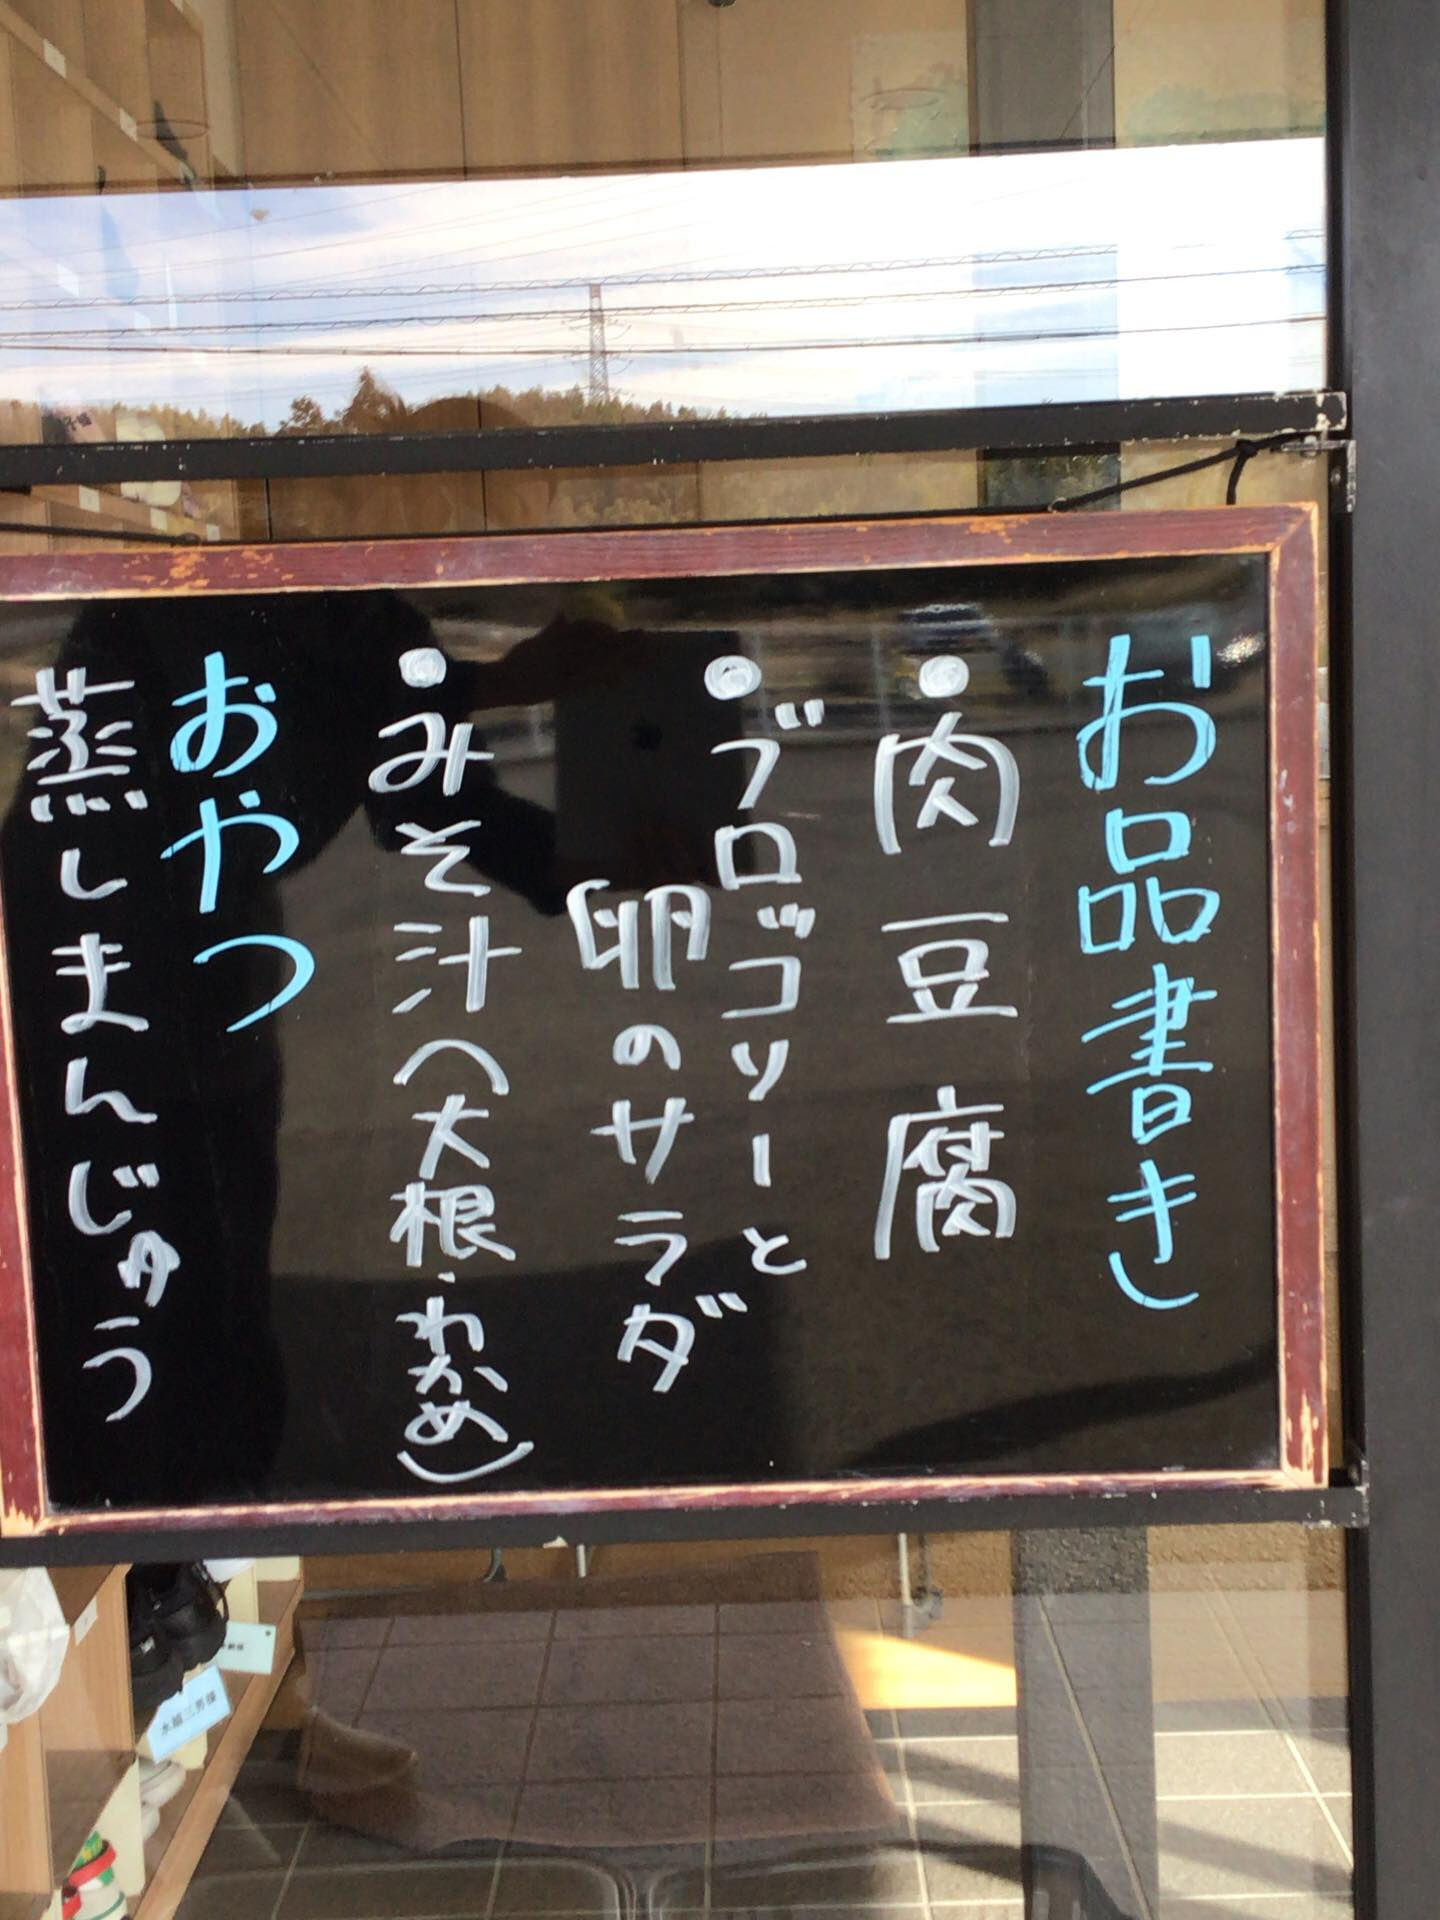 お品書き
・肉豆腐
・ブロゴリーと
卵のサラダ
・みそ汁(大根・わかめ)
おやつ
蒸しまんじゅう